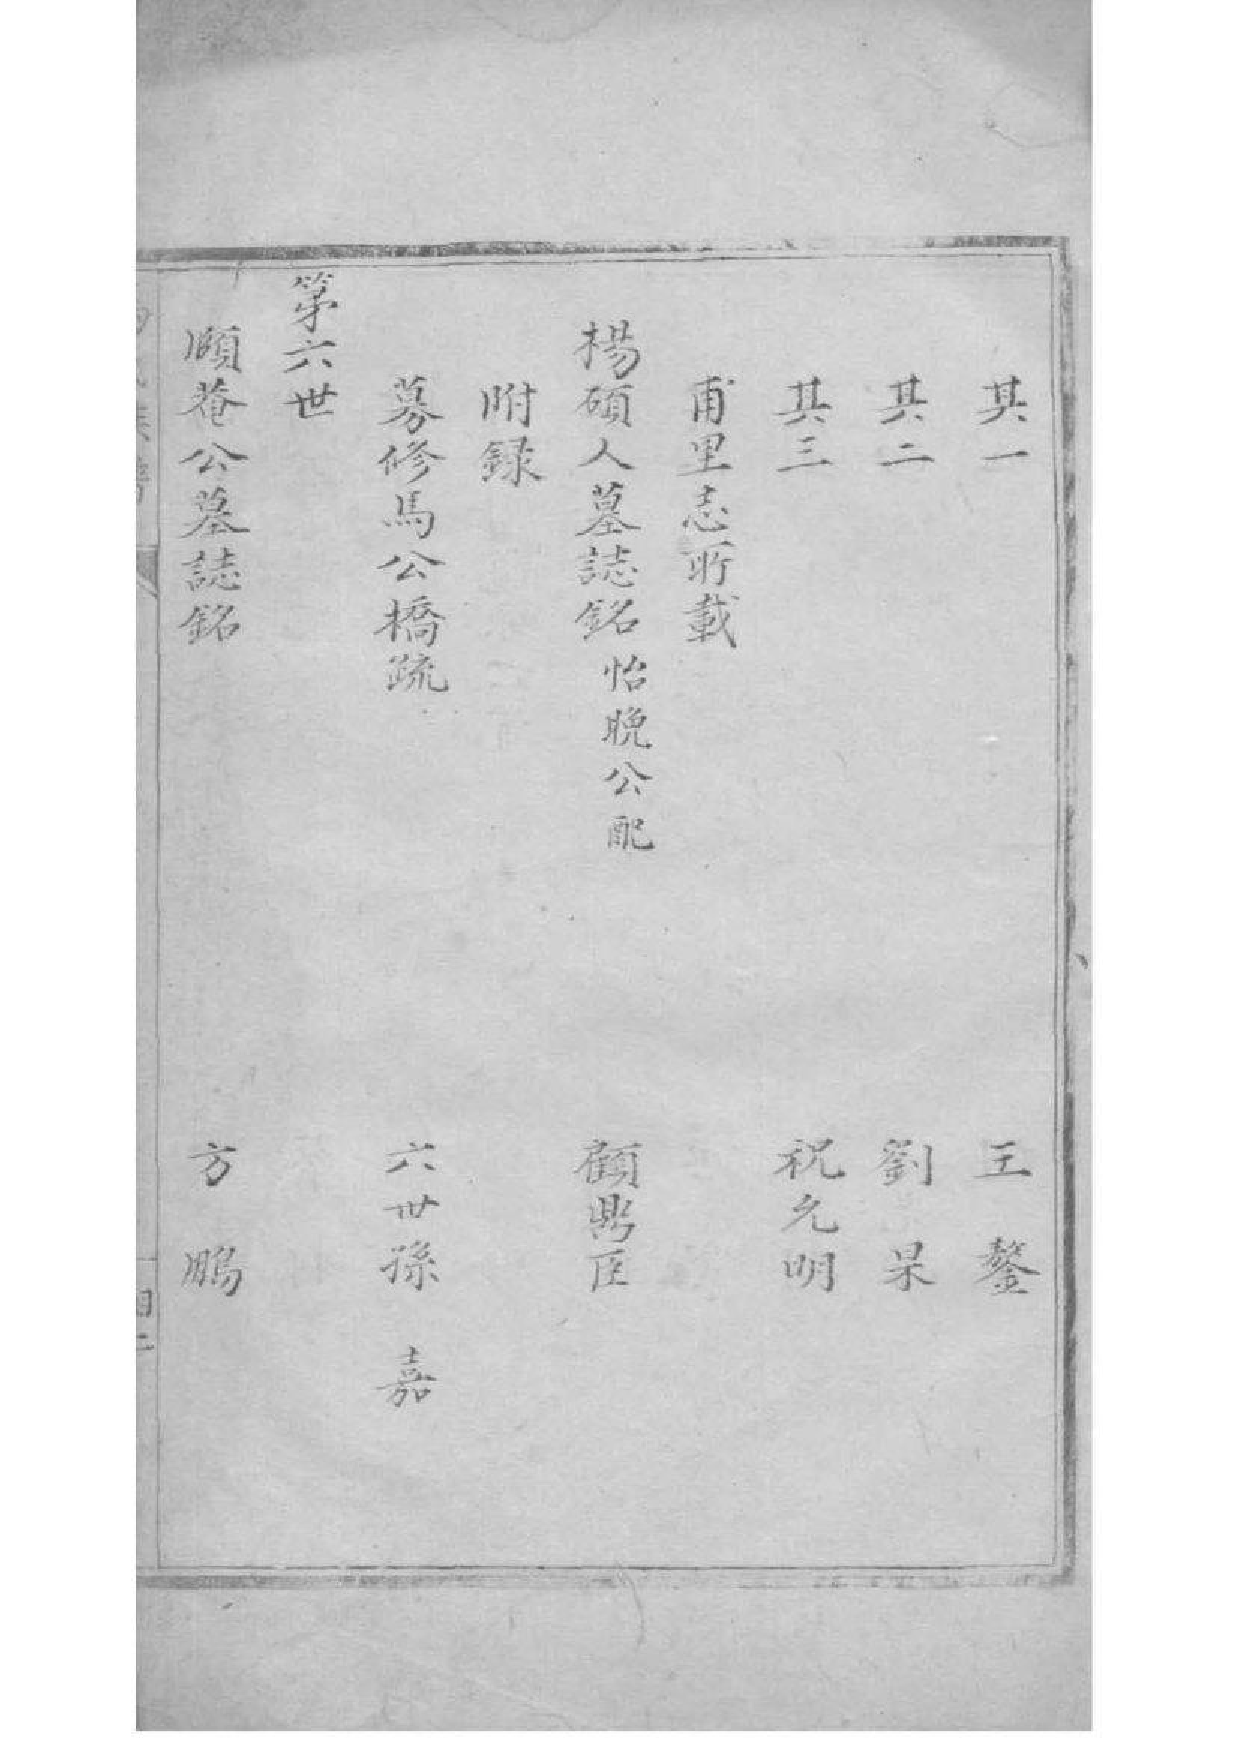 其一　王鏊
其二　劉杲
其三　祝允明
甫里志所載
楊碩人墓誌銘怡晚公配　顧鼎臣
附録
募修馬公橋疏　六世孫　嘉
第六世
頤菴公墓誌銘　方鵬